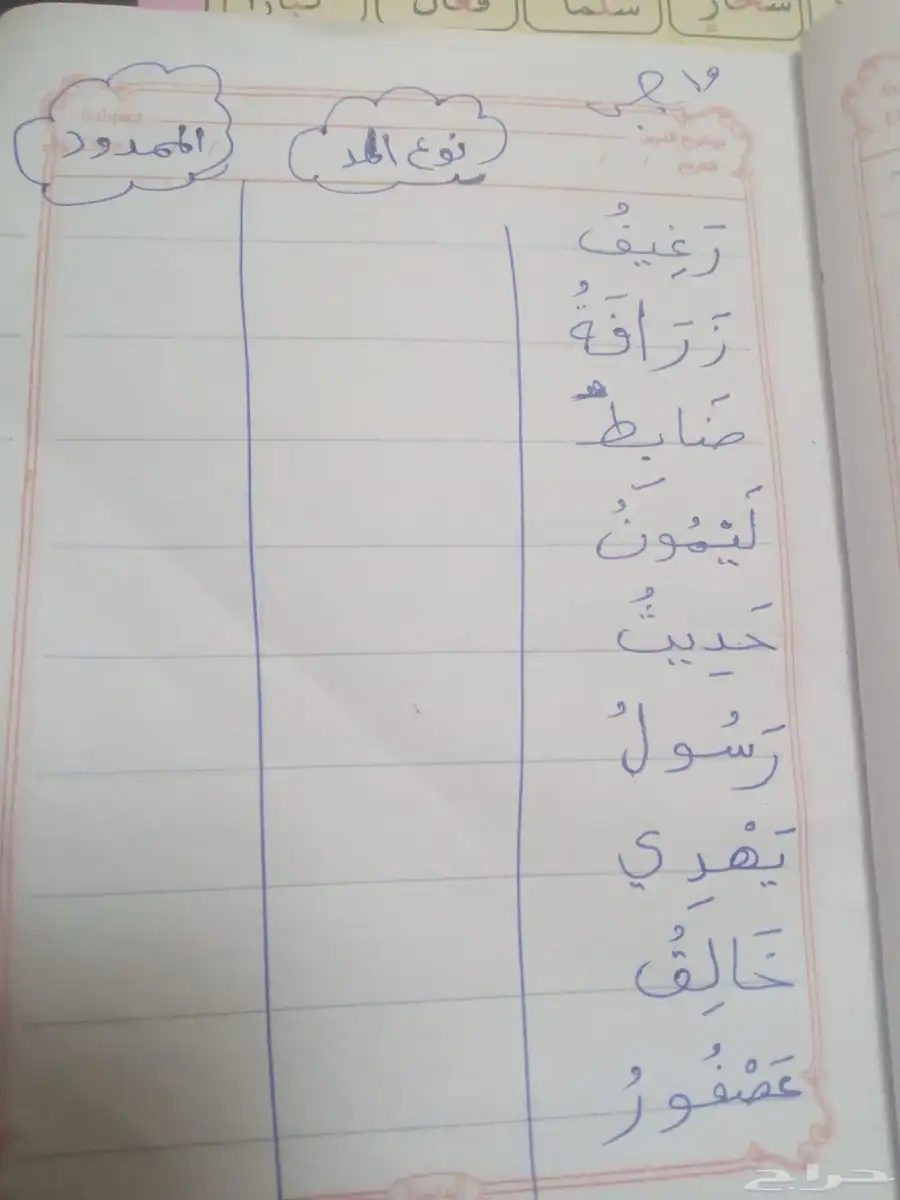 سلما
واجب
نوع المد
الممدود
رَغِيفُ
زَرَافَةُ
ضَابِطُ
لَيْمُونَُ
حَدِيثُ
رَسُولُ
يَهْدِي
خَالِقُ
عَصْفُورُ
حراج